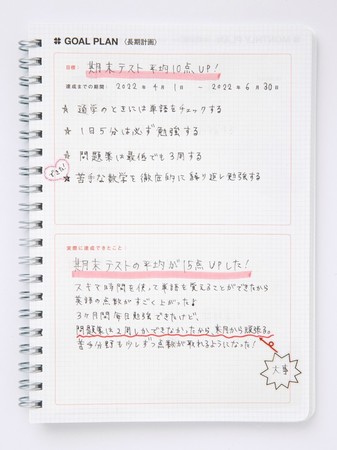 GOAL PLAN (長期計画)
目標: 期末テスト平均10点UP!
達成までの期間: 2022年4月1日 ~ 2022年6月30日
☆ 通学のときには単語をチェックする
☆ 1日5分は必ず勉強する
☆ 問題集は最低でも3周する
できた!
☆ 苦手な数学を徹底的に繰り返し勉強する
実際に達成できたこと:
期末テストの平均が15点UPした!
スキマ時間を使って単語を覚えることができたから
英語の点数がすごく上がったよ♪
3ヶ月間毎日勉強できたけど、
問題集は2周しかできなかったから、来月から頑張る。
苦手分野も少しずつ点数が取れるようになった!
大事